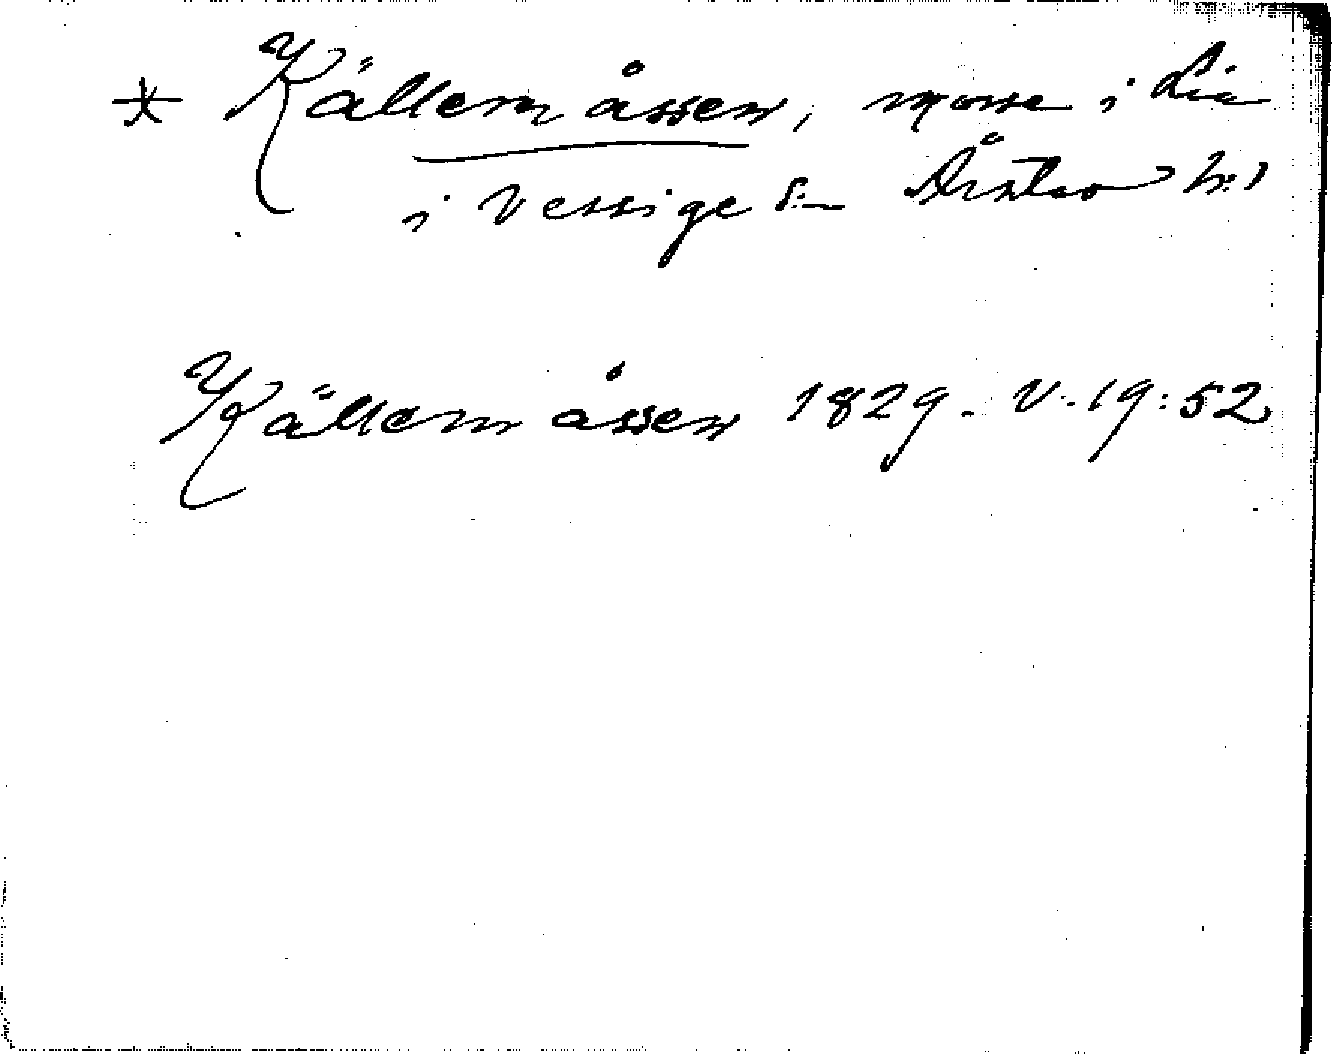 * Källemåssen, mosse i Lia
i Vessige sn Årstad hd
Källemåssen 1829. V. 19:52